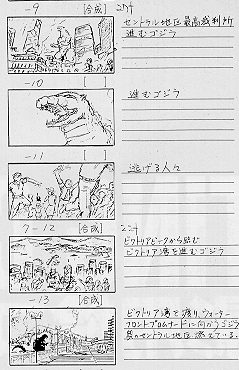 -9 [合成] 2カ
セントラル地区最高裁判所
進むゴジラ
-10 [ ]
進むゴジラ
-11 [ ]
逃げる人々
7-12 [合成] 2カ
ビクトリアピークから臨む
ビクトリア湾を進むゴジラ
-13 [合成]
ビクトリア湾を渡り、ウォーター
フロントプロムナードに向かうゴジラ
奥のセントラル地区 燃えている。